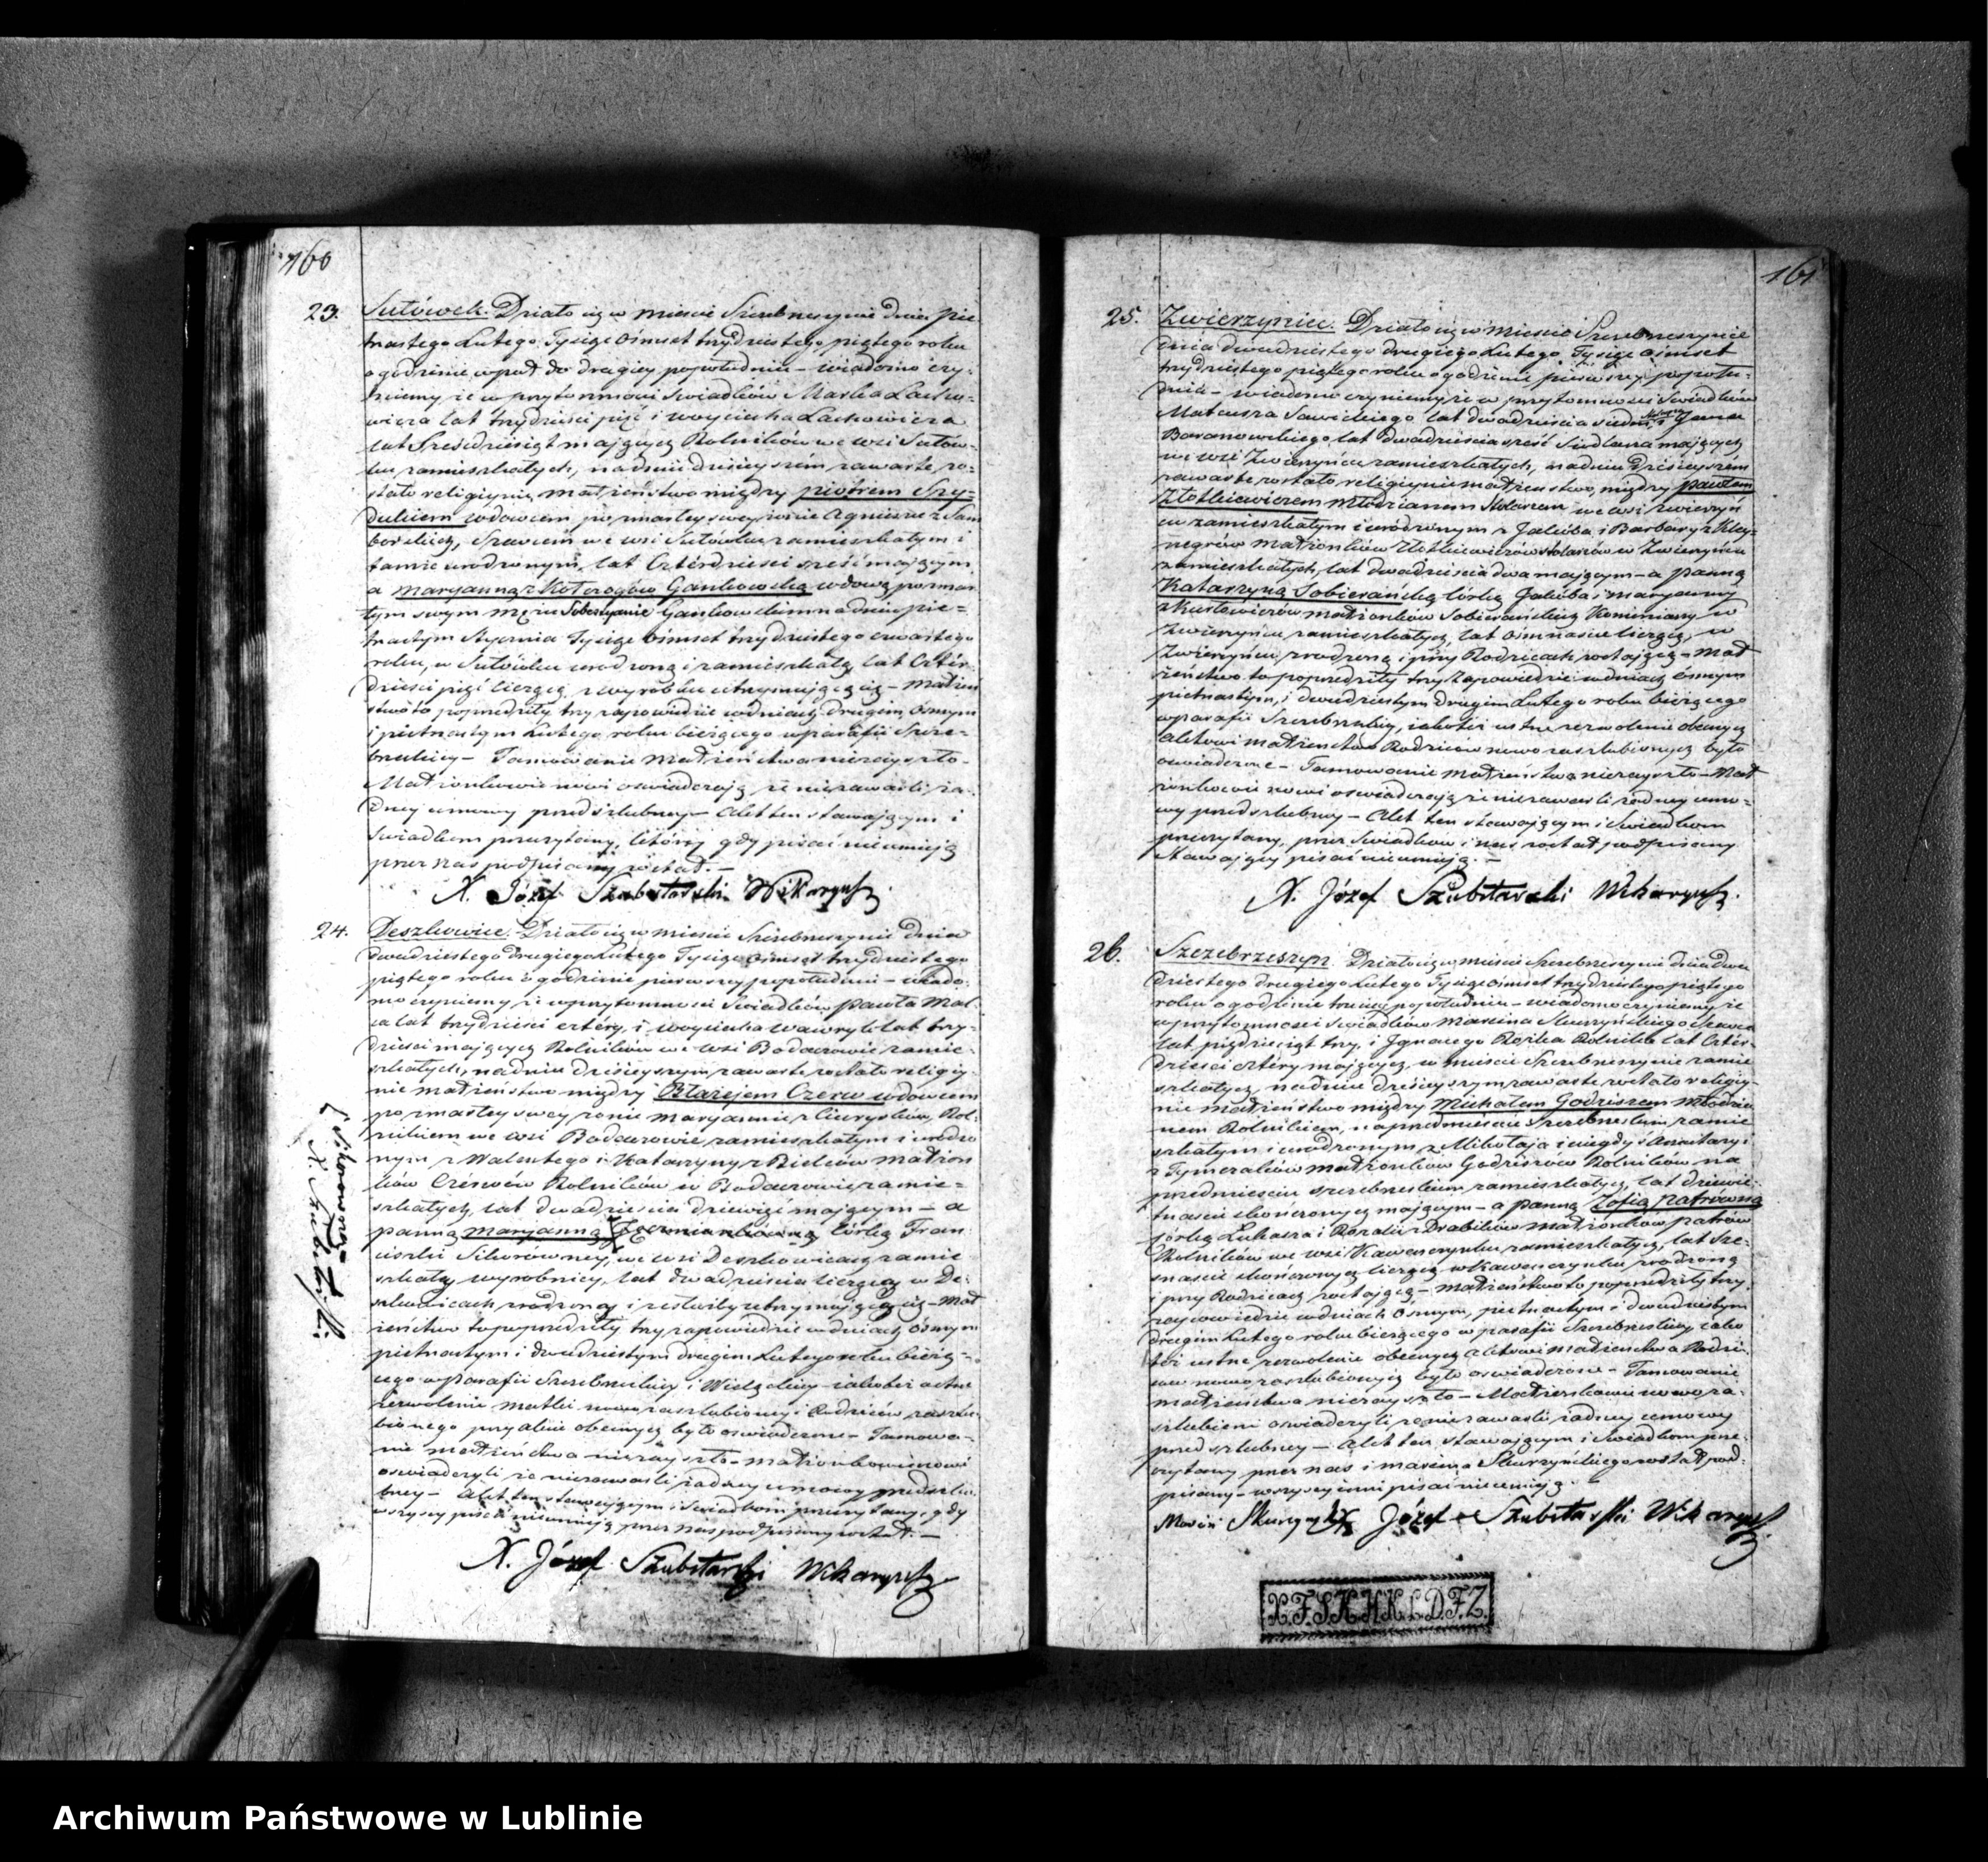 160
23. Sułówek. Działo się w mieście Szczebrzeszynie dnia pię-
tnastego Lutego Tysiąc ośmset trzydziestego piątego roku
o godzinie wpół do drugiej popołudniu – wiadomo czy-
niemy, że w przytomności świadków Marka Lacho-
wicza lat trzydzieści pięć i Woyciecha Lachowicza
lat sześćdziesiąt mających Rolników we wsi Sułow-
ku zamieszkałych, na dniu dzisieyszém zawarte zo-
stało religijnie małżeństwo między piotrem Szy-
dukiem wdowcem po zmarłey swey żonie Agnieszce z Sam
borskich, we wsi Sułówku zamieszkałym i
tamże urodzonym, lat Czterdzieści sześć mającym
a maryanną z Gankowską wdową po zmar
łym swym mężu Gankowskim na dniu pię-
tnastym Stycznia Tysiąc ośmset trzydziestego czwartego
roku, w Sułówku urodzoną i zamieszkałą lat Czter-
dzieści pięć liczącą, z wyrobku utrzymującą się – Małżeń
stwo to poprzedziły try zapowiedzie w dniach drugim, ósmym
i piętnastym Lutego roku bieżącego w parafii Szcze-
brzeskiey – Tamowanie małżeństwa niezayszło –
Małżonkowie nowi oświadczają, że niezawarli ża-
dney umowy przedślubney – Akt ten stawającym i
świadkom przeczytany, którzy gdy pisać nieumieją
przez nas podpisany został. –
X. Józef Szubstarski Wikaryusz
24. Deszkowice. Działo się w mieście Szczebrzeszynie dnia
dwudziestego drugiego Lutego Tysiąc ośmset trzydziestego
piątego roku o godzinie pierwszey popołudniu – wiado-
mo czyniemy, że w przytomności świadków pawła Mal-
ca lat trzydzieści cztéry, i Woyciecha Wawryk lat trzy-
dzieści mających Rolników we wsi Bodaczowie zamie-
szkałych, na dniu dzisieyszym zawarte zostało religiy-
nie małżeństwo między Błażejem Czerw wdowcem
po zmarłey swey żonie maryannie z Rol-
nikiem we wsi Bodaczowie zamieszkałym i urodzo
nym z Walentego i Katarzyny z Bielców małżon
ków Czerwów Rolników w Bodaczowie zamie-
szkałych, lat dwadzieścia dziewięć mającym – a
panną maryanną córką Fran
ciszki Sikorówney, we wsi Deszkowicach zamie
szkałey wyrobnicy, lat dwadzieścia liczącą w De-
szkowicach zrodzoną i z służby utrzymującą się – Mał
żeństwo to poprzedziły try zapowiedzie w dniach ósmym
piętnastym i dwudziestym drugim Lutego roku bieżą-
cego w parafii Szczebrzeskiey i Wielgckiey – jakoteż ustne
zezwolenie matki nowo zaślubioney i Rodziców zaślu-
bionego przy akcie obecnych było oświadczone – Tamowa-
nie małżeństwa niezayszło – małżonkowie nowi
oświadczyli że niezawarli żadney umowy przedślu-
bney – Akt ten stawającym i świadkom przeczytany, gdy
wszyscy pisać nieumieją przez nas podpisany został. –
X. Józef Szubstarski Wikaryusz
Sikorowną
X. Szubstarski
161
25. Zwierzyniec. Działo się w mieście Szczebrzeszynie
dnia dwudziestego drugiego Lutego Tysiąc ośmset
trzydziestego piątego roku o godzinie pierwszey popołu-
dniu – wiadomo czyniemy, że w przytomności świadków
Mateusza Sawickiego lat dwadzieścia siedm i Jana
Baranowskiego lat dwadzieścia sześć mających
we wsi Zwierzyńcu zamieszkałych, na dniu dzisieyszém
zawarte zostało religiynie małżeństwo, między pawłem
Złotkiewiczem Młodzianem Stolarzem we wsi Zwierzyń
cu zamieszkałym i urodzonym z Jakóba i Barbary z
małżonków Złotkiewiczów Stolarzów w Zwierzyńcu
zamieszkałych, lat dwadzieścia dwa mającym – a panną
Katarzyną Sobierańską córką Jakóba i maryanny
małżonków Sobierańskich w
Zwierzyńcu zamieszkałych, lat ośmnaście liczącą, w
Zwierzyńcu zrodzoną i przy Rodzicach zostającą – Mał
żeństwo to poprzedziły try zapowiedzie w dniach ósmym
piętnastym, i dwudziestym drugim Lutego roku bieżącego
w parafii Szczebrzeskiey, jakoteż ustne zezwolenie obecnych
Aktowi małżeństwa Rodziców nowo zaślubionych było
oświadczone – Tamowanie małżeństwa niezayszło – Mał
żonkowie nowi oświadczają że niezawarli żadney umo-
wy przedślubney – Akt ten stawającym i świadkom
przeczytany, przez świadków i nas został podpisany
Stawający pisać nieumieją. –
X. Józef Szubstarski Wikaryusz.
26. Szczebrzeszyn. Działo się w mieście Szczebrzeszynie dnia dwu
dziestego drugiego Lutego Tysiąc ośmset trzydziestego piątego
roku o godzinie trzeciey popołudniu – wiadomo czyniemy, że
w przytomności świadków Marcina Skurzyńskiego
lat pięćdziesiąt try, i Ignacego Rolnika lat Czter-
dzieści cztéry mających, w mieście Szczebrzeszynie zamie
szkałych, na dniu dzisieyszym zawarte zostało religiy-
nie małżeństwo między Michałem Godziszem Młodzia
nem Rolnikiem, na przedmieściu Szczebrzeskim zamie
szkałym i urodzonym z Mikołaja i niegdy Anastazyi
z małżonków Godziszów Rolników na
przedmieściu Szczebrzeskiem zamieszkałych, lat dziewię-
tnaście skończonych mającym – a panną Zofią Patrówną
córką Łukasza i Rozalii z Drabików małżonków patrów
Rolników we wsi Kawenczynku zamieszkałych, lat sze-
snaście skończonych liczącą w Kawenczynku zrodzoną
i przy Rodzicach zostającą – małżeństwo to poprzedziły try
zapowiedzie w dniach ósmym, piętnastym i dwudziestym
drugim Lutego roku bieżącego w parafii Szczebrzeskiey jako
też ustne zezwolenie obecnych Aktowi małżeństwa Rodzi-
ców nowo zaślubionych było oświadczone – Tamowanie
małżeństwa niezayszło – Małżonkowie nowo za-
ślubieni oświadczyli że niezawarli żadney umowy
przedślubney – Akt ten stawającym i świadkom prze-
czytany przez nas i marcina Skurzyńskiego został pod-
pisany – wszyscy inni pisać nieumieją.
X. Józef Szubstarski Wikaryusz
X.F.S.K.H.K.L.D.F.Z.
Archiwum Państwowe w Lublinie